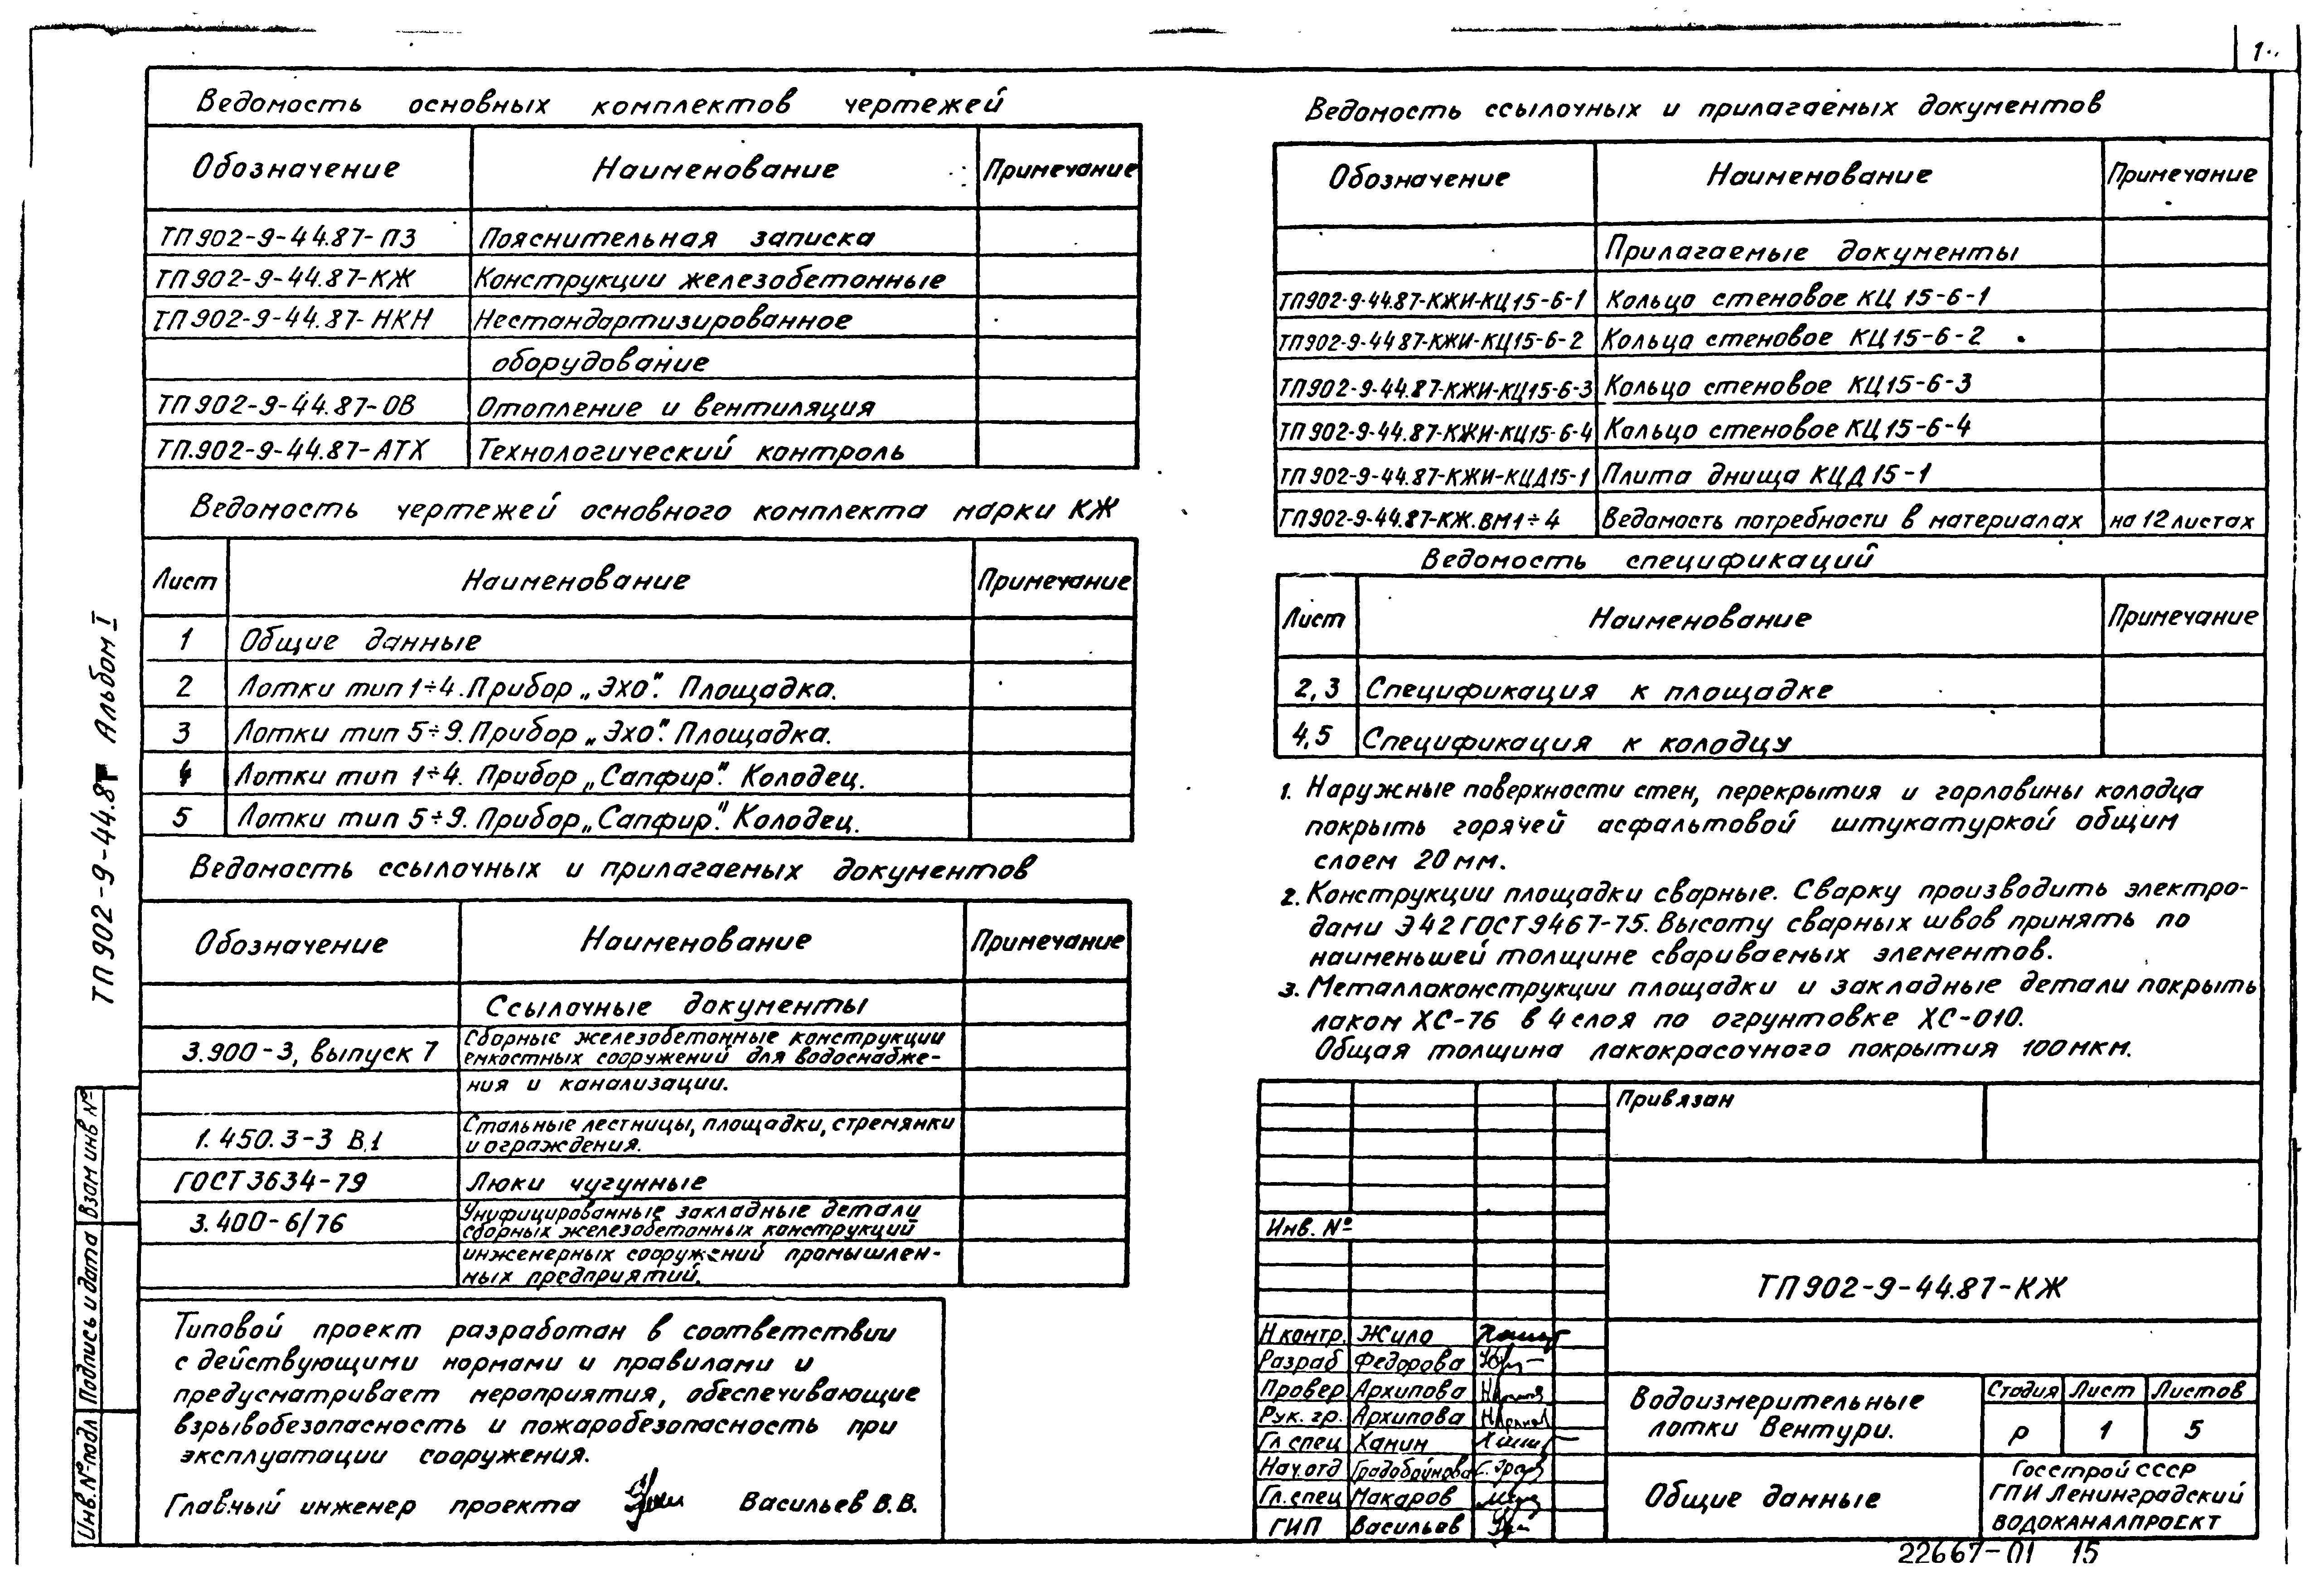 1
Ведомость основных комплектов чертежей
Обозначение Наименование Примечание
ТП902-9-44.87-ПЗ Пояснительная записка
ТП902-9-44.87-КЖ Конструкции железобетонные
ТП902-9-44.87-НКН Нестандартизированное
оборудование
ТП902-9-44.87-ОВ Отопление и вентиляция
ТП.902-9-44.87-АТХ Технологический контроль
Ведомость чертежей основного комплекта марки КЖ
Лист Наименование Примечание
1 Общие данные
2 Лотки тип 1÷4. Прибор „Эхо". Площадка.
3 Лотки тип 5÷9. Прибор „Эхо". Площадка.
4 Лотки тип 1÷4. Прибор „Сапфир". Колодец.
5 Лотки тип 5÷9. Прибор „Сапфир". Колодец.
Ведомость ссылочных и прилагаемых документов
Обозначение Наименование Примечание
Ссылочные документы
3.900-3, выпуск 7 Сборные железобетонные конструкции
емкостных сооружений для водоснабже-
ния и канализации.
1.450.3-3 В.1 Стальные лестницы, площадки, стремянки
и ограждения.
ГОСТ 3634-79 Люки чугунные
3.400-6/76 Унифицированные закладные детали
сборных железобетонных конструкций
инженерных сооружений промышлен-
ных предприятий.
Типовой проект разработан в соответствии
с действующими нормами и правилами и
предусматривает мероприятия, обеспечивающие
взрывобезопасность и пожаробезопасность при
эксплуатации сооружения.
Главный инженер проекта Васильев В.В.
Ведомость ссылочных и прилагаемых документов
Обозначение Наименование Примечание
Прилагаемые документы
ТП902-9-44.87-КЖИ-КЦ15-6-1 Кольцо стеновое КЦ 15-6-1
ТП902-9-44 87-КЖИ-КЦ15-6-2 Кольцо стеновое КЦ15-6-2
ТП902-9-44.87-КЖИ-КЦ15-6-3 Кольцо стеновое КЦ15-6-3
ТП902-9-44.87-КЖИ-КЦ15-6-4 Кольцо стеновое КЦ15-6-4
ТП902-9-44.87-КЖИ-КЦД15-1 Плита днища КЦД15-1
ТП902-9-44.87-КЖ.ВМ1÷4 Ведомость потребности в материалах на 12 листах
Ведомость спецификаций
Лист Наименование Примечание
2,3 Спецификация к площадке
4,5 Спецификация к колодцу
1. Наружные поверхности стен, перекрытия и горловины колодца
покрыть горячей асфальтовой штукатуркой общим
слоем 20 мм.
2. Конструкции площадки сварные. Сварку производить электро-
дами Э42 ГОСТ 9467-75. Высоту сварных швов принять по
наименьшей толщине свариваемых элементов.
3. Металлоконструкции площадки и закладные детали покрыть
лаком ХС-76 в 4 слоя по огрунтовке ХС-010.
Общая толщина лакокрасочного покрытия 100мкм.
Привязан
Инв. №
ТП902-9-44.87-КЖ
Н контр. Жило
Разраб Федорова
Провер Архипова
Рук. гр. Архипова
Гл спец Ханин
Нач.отд Градобойнова
Гл.спец Макаров
ГИП Васильев
Водоизмерительные
лотки Вентури.
Стадия Лист Листов
Р 1 5
Общие данные
Госстрой СССР
ГПИ Ленинградский
ВОДОКАНАЛПРОЕКТ
22667-01 15
ТП902-9-44.87 Альбом I
Взам инв №
Подпись и дата
Инв. № подл